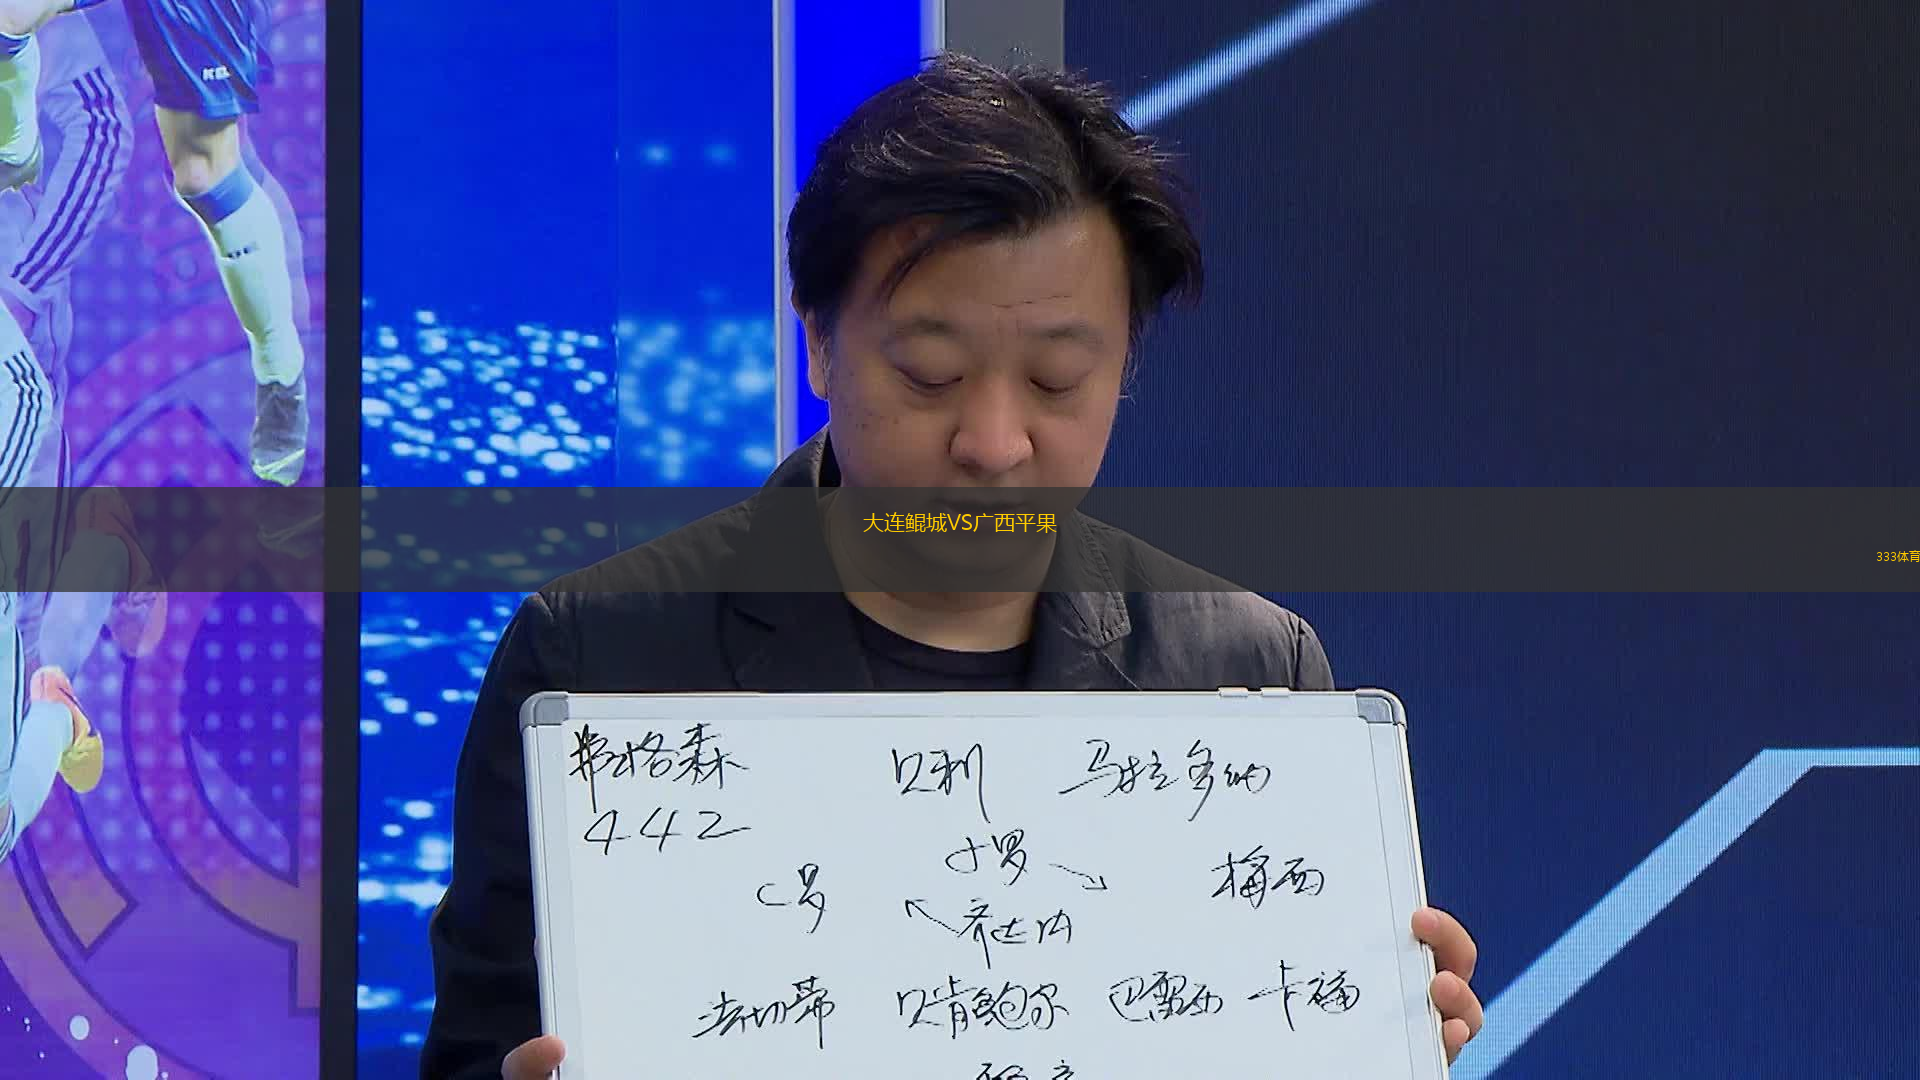 大连鲲城VS广西平果
333体育
弗格森 贝利 马拉多纳
442
小罗
C罗 梅西
齐达内
法切蒂 贝肯鲍尔 巴雷西 卡福